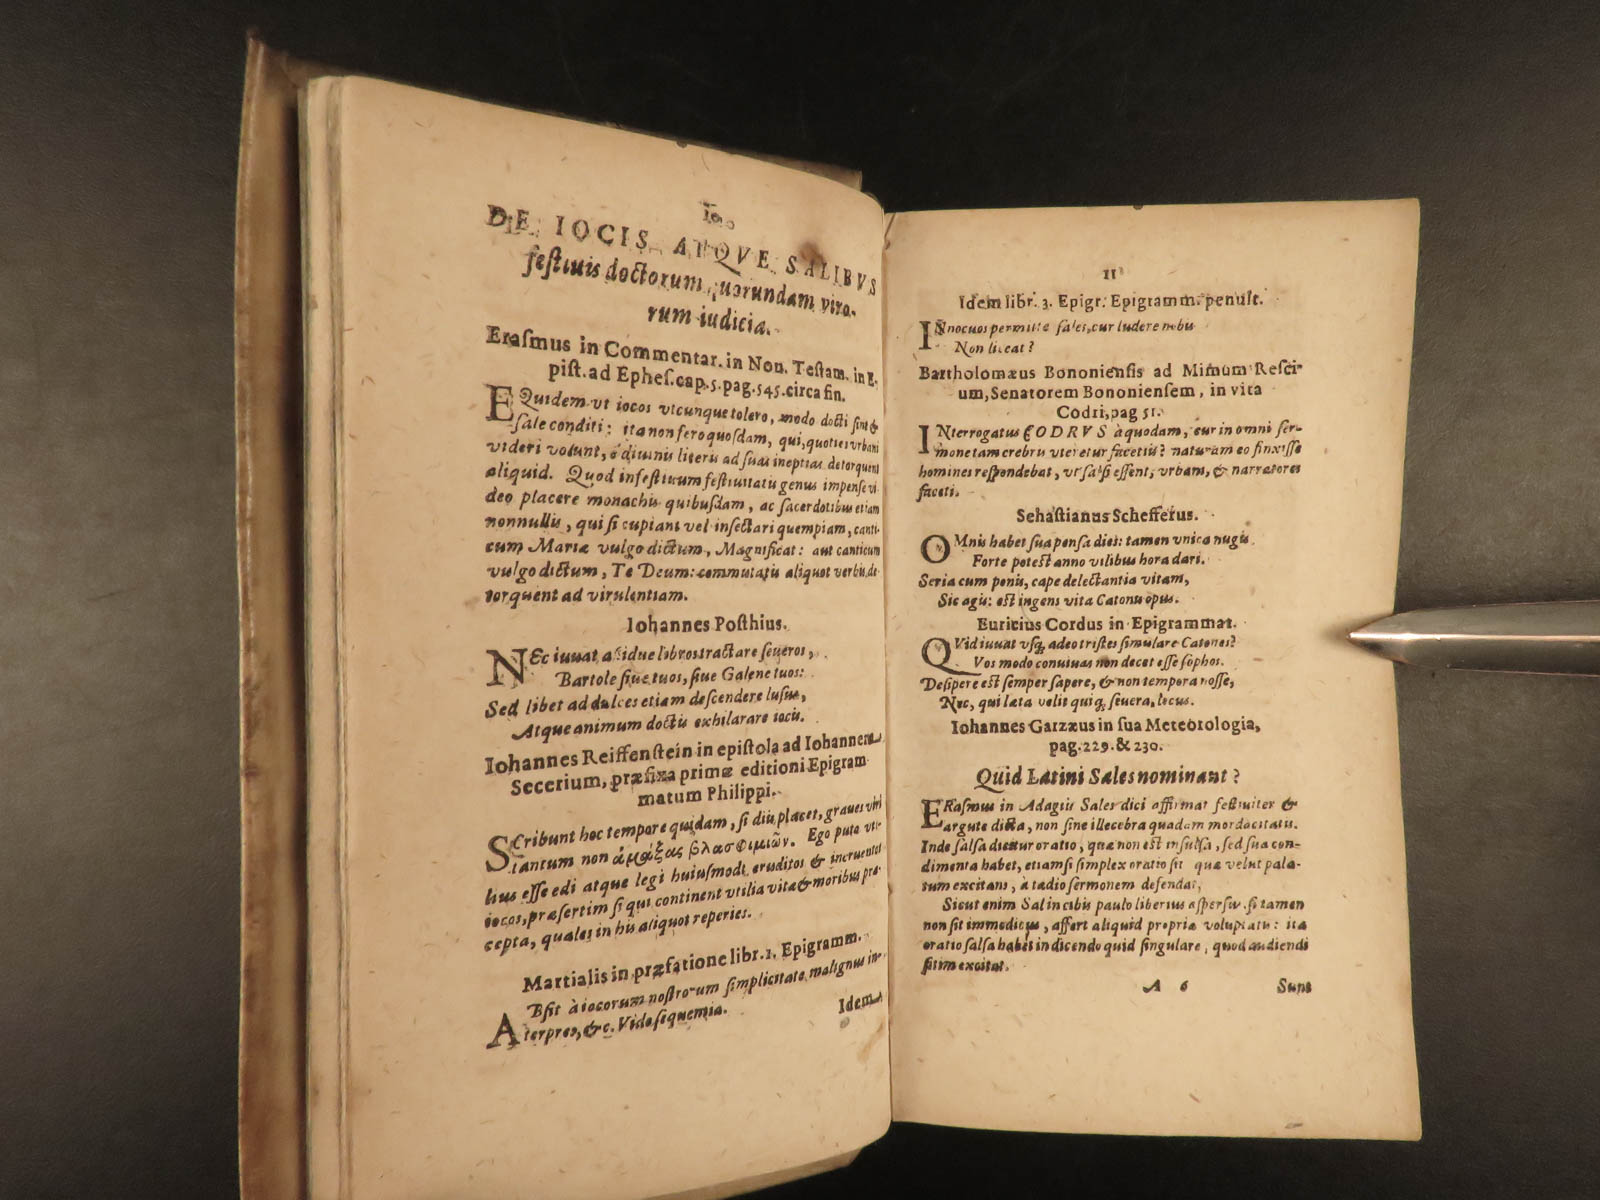 10
DE IOCIS ATQVE SALIBVS
festiuis doctorum quorundam viro-
rum iudicia.
Erasmus in Commentar. in Nou. Testam. in E-
pist. ad Ephes. cap. 5. pag. 545. circa fin.
EQuidem vt iocos vtcunque tolero, modo docti sint &
sale conditi: ita non fero quosdam, qui, quoties vrbani
videri volunt, è diuinis literis ad suas ineptias detorquent
aliquid. Quod infestiuum festiuitatis genus impense vi-
deo placere monachis quibusdam, ac sacerdotibus etiam
nonnullis, qui si cupiant vel insectari quempiam, canti-
cum Mariæ vulgo dictum, Magnificat: aut canticum
vulgo dictum, Te Deum: commutatis aliquot verbis, de-
torquent ad virulentiam.
Iohannes Posthius.
NEc iuuat assidue libros tractare seueros,
Bartole siue tuos, siue Galene tuos:
Sed libet ad dulces etiam descendere lusus,
Atque animum doctis exhilarare iocis.
Iohannes Reiffenstein in epistola ad Iohannem
Secerium, præfixa primæ editioni Epigram-
matum Philippi.
SCribunt hoc tempore quidam, si diis placet, graues viri
tantum non ἁμάξας βλασφιμιῶν. Ego puto vti-
lius esse edi atque legi huiusmodi eruditos & incruentos
iocos, præsertim si qui continent vtilia vitæ & moribus præ-
cepta, quales in his aliquot reperies.
Martialis in præfatione libr. 1. Epigramm.
ABsit à iocorum nostrorum simplicitate malignus in-
terpres, &c. Vide sequentia.
Idem
11
Idem libr. 3. Epigr. Epigramm. penult.
INnocuos permitte sales, cur ludere nobis
Non liceat?
Bartholomæus Bononiensis ad Minum Rosci-
um, Senatorem Bononiensem, in vita
Codri, pag 51.
INterrogatus CODRVS à quodam, cur in omni ser-
mone tam crebru vteretur facetiis? naturam eo finxisse
homines respondebat, vt salsi essent, vrbani, & narratores
faceti.
Sebastianus Schefferus.
OMnis habet sua pensa dies: tamen vnica nugis
Forte potest anno vilibus hora dari.
Seria cum ponis, cape delectantia vitam,
Sic agis: est ingens vita Catonis opus.
Euricius Cordus in Epigrammat.
QVid iuuat vsq; adeo tristes simulare Catones?
Vos modo conuiuas non decet esse sophos.
Desipere est semper sapere, & non tempora nosse,
Nec, qui læta velit quiq; seuera, locus.
Iohannes Garzæus in sua Meteorologia,
pag. 229. & 230.
Quid Latini Sales nominant?
ERasmus in Adagiis Sales dici affirmat festiuiter &
argute dicta, non sine illecebra quadam mordacitatis.
Inde salsa dicitur oratio, quæ non est insulsa, sed sua con-
dimenta habet, etiamsi simplex oratio sit quæ velut pala-
tum excitans, à tædio sermonem defendat,
Sicut enim Sal in cibis paulo liberius aspersus, si tamen
non sit immodicus, affert aliquid propriæ voluptatis: ita
oratio salsa habet in dicendo quid singulare, quod audiendi
sitim excitat.
A 6 Sunt